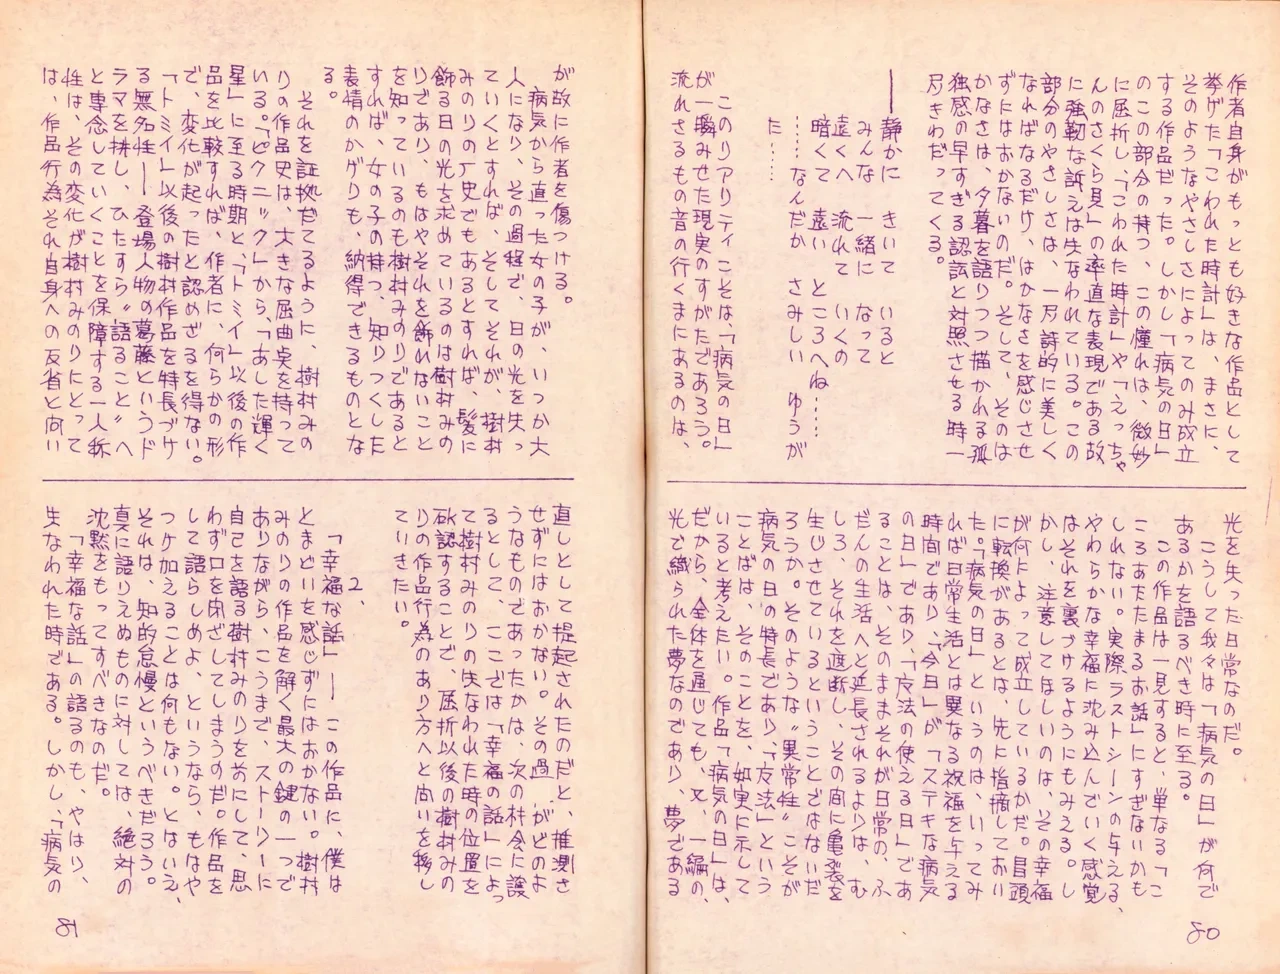 作者自身がもっとも好きな作品として
挙げた「こわれた時計」は、まさに、
そのようなやさしさによってのみ成立
する作品だった。しかし「病気の日」
のこの部分の持つ、この憧れは、微妙
に屈折し、「こわれた時計」や「えっちゃ
んのさくら見」の率直な表現である故
に強靭な訴えは失なわれている。この
部分のやさしさは、一方詩的に美しく
なればなるだけ、はかなさを感じさせ
ずにはおかないのだ。そして、そのは
かなさは、夕暮を語りつつ描かれる孤
独感の早すぎる認識と対照させる時一
層きわだってくる。
静かに きいて いると
みんな 一緒に なって
遠くへ 流れて いくの
暗くて 遠い ところへね……
……なんだか さみしい ゆうが
た……
このリアリティこそは、「病気の日」
が一瞬みせた現実のすがたであろう。
流れさるもの音の行くまにあるのは、
光を失った日常なのだ。
こうして我々は「病気の日」が何で
あるかを語るべき時に至る。
この作品は一見すると、単なる「こ
ころあたたまるお話」にすぎないかも
しれない。実際ラストシーンの与える、
やわらかな幸福に沈み込んでいく感覚
はそれを裏づけるようにもみえる。し
かし、注意してほしいのは、その幸福
が何によって成立しているかだ。冒頭
に転換があるとは、先に指摘しておい
た。「病気の日」というのは、いってみ
れば日常生活とは異なる祝福を与える
時間であり、「今日」が「ステキな病気
の日」であり、「魔法の使える日」であ
ることは、そのままそれが日常の、ふ
だんの生活へと延長されるよりは、む
しろ、それを遮断し、その間に亀裂を
生じさせているということではないだ
ろうか。そのような〝異常性〟こそが
病気の日の特長であり、「魔法」という
ことばは、そのことを、如実に示して
いると考えたい。作品「病気の日」は、
だから、全体を通じても、又、一編の、
光で織られた夢なのであり、夢である
80
が故に作者を傷つける。
病気から直った女の子が、いつか大
人になり、その過程で、日の光を失っ
ていくとすれば、そしてそれが、樹村
みのりの歴史でもあるとすれば、髪に
飾る日の光を求めているのは樹村みの
りであり、もはやそれを飾れないこと
を知っているのも樹村みのりであると
すれば、女の子の持つ、知りつくした
表情のかげりも、納得できるものとな
る。
それを証拠だてるように、樹村みの
りの作品史は、大きな屈曲点を持って
いる。「ピクニック」から、「あした輝く
星」に至る時期と、「トミイ」以後の作
品を比較すれば、作者に、何らかの形
で、変化が起ったと認めざるを得ない。
「トミイ」以後の樹村作品を特長づけ
る無名性――登場人物の葛藤というド
ラマを排し、ひたすら〝語ること〟へ
と専念していくことを保障する一人称
性は、その変化が樹村みのりにとって
は、作品行為それ自身への反省と問い
直しとして提起されたのだと、推測さ
せずにはおかない。その過 がどのよ
うなものであったかは、次の機会に譲
るとして、ここでは「幸福の話」によっ
て樹村みのりの失なわれた時の位置を
確認することで、屈折以後の樹村みの
りの作品行為のあり方へと問いを移し
ていきたい。
2、
「幸福な話」――この作品に、僕は
とまどいを感じずにはおかない。樹村
みのりの作品を解く最大の鍵の一つで
ありながら、こうまで、ストーリーに
自己を語る樹村みのりを前にして、思
わず口を閉ざしてしまうのだ。作品を
して語らしめよ、というなら、もはや
つけ加えることは何もない。とはいえ、
それは、知的怠慢というべきだろう。
真に語りえぬものに対しては、絶対の
沈黙をもってすべきなのだ。
「幸福な話」の語るのも、やはり、
失なわれた時である。しかし、「病気の
81